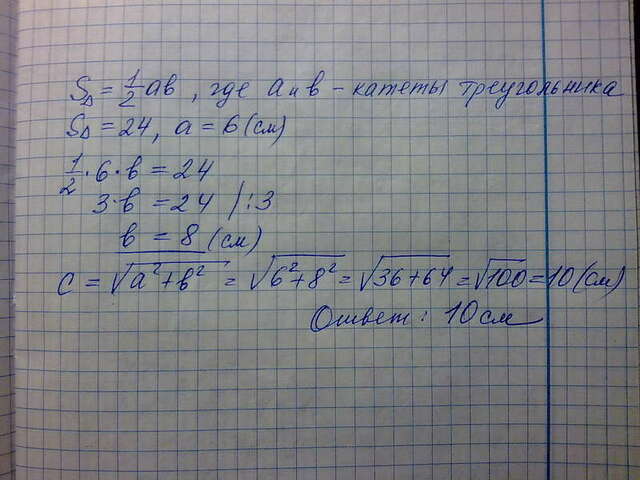 S△ = 1/2 ab, где a и b – катеты треугольника
S△ = 24, a = 6 (см)
1/2 · 6 · b = 24
3 · b = 24 / : 3
b = 8 (см)
c = √(a² + b²) = √(6² + 8²) = √(36 + 64) = √100 = 10 (см)
Ответ: 10 см